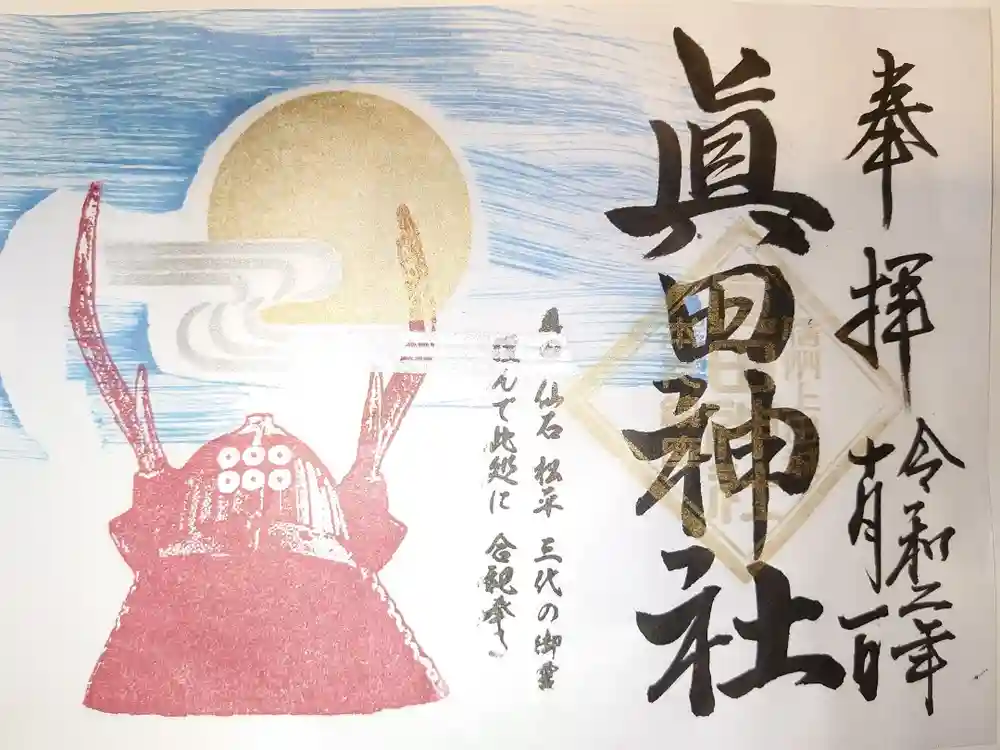 奉拝
令和二年
十月一日
眞田神社
信州上
眞田 仙石 松平 三代の御霊
謹んで此処に 合祀奉